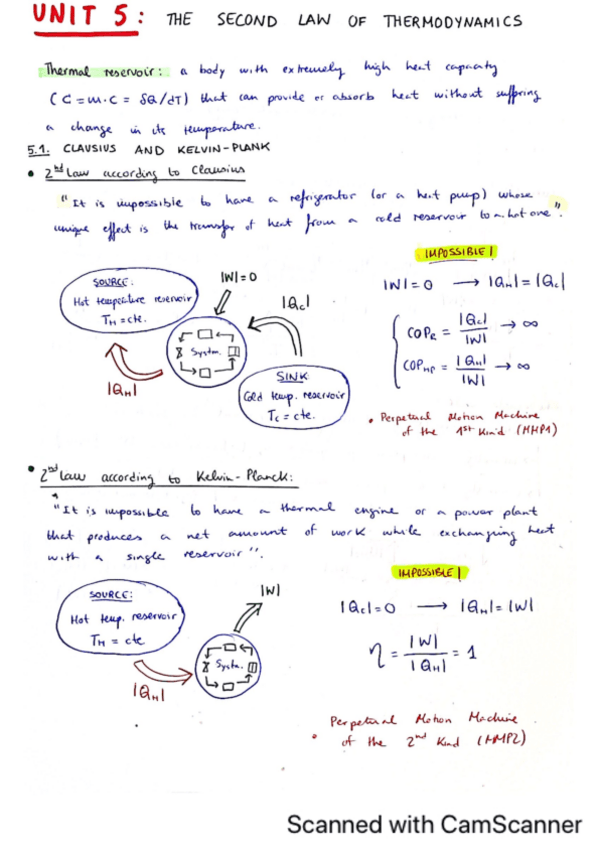 UNIT 5: THE SECOND LAW OF THERMODYNAMICS
Thermal reservoir: a body with extremely high heat capacity
(C = m·c = δQ/dT) that can provide or absorb heat without suffering
a change in its temperature.
5.1. CLAUSIUS AND KELVIN-PLANK
• 2nd Law according to Clausius
"It is impossible to have a refrigerator (or a heat pump) whose
unique effect is the transfer of heat from a cold reservoir to a hot one".
IMPOSSIBLE!
SOURCE:
Hot temperature reservoir
TH = cte.
|W| = 0
|QC|
System.
|QH|
SINK
Cold temp. reservoir
TC = cte.
|W| = 0 → |QH| = |QC|
COPR = |QC| / |W| → ∞
COPHP = |QH| / |W| → ∞
• Perpetual Motion Machine
of the 1st Kind (MMP1)
• 2nd Law according to Kelvin-Planck:
"It is impossible to have a thermal engine or a power plant
that produces a net amount of work while exchanging heat
with a single reservoir".
IMPOSSIBLE!
SOURCE:
Hot temp. reservoir
TH = cte
|W|
Syste.
|QH|
|QC| = 0 → |QH| = |W|
η = |W| / |QH| = 1
Perpetual Motion Machine
• of the 2nd Kind (MMP2)
Scanned with CamScanner